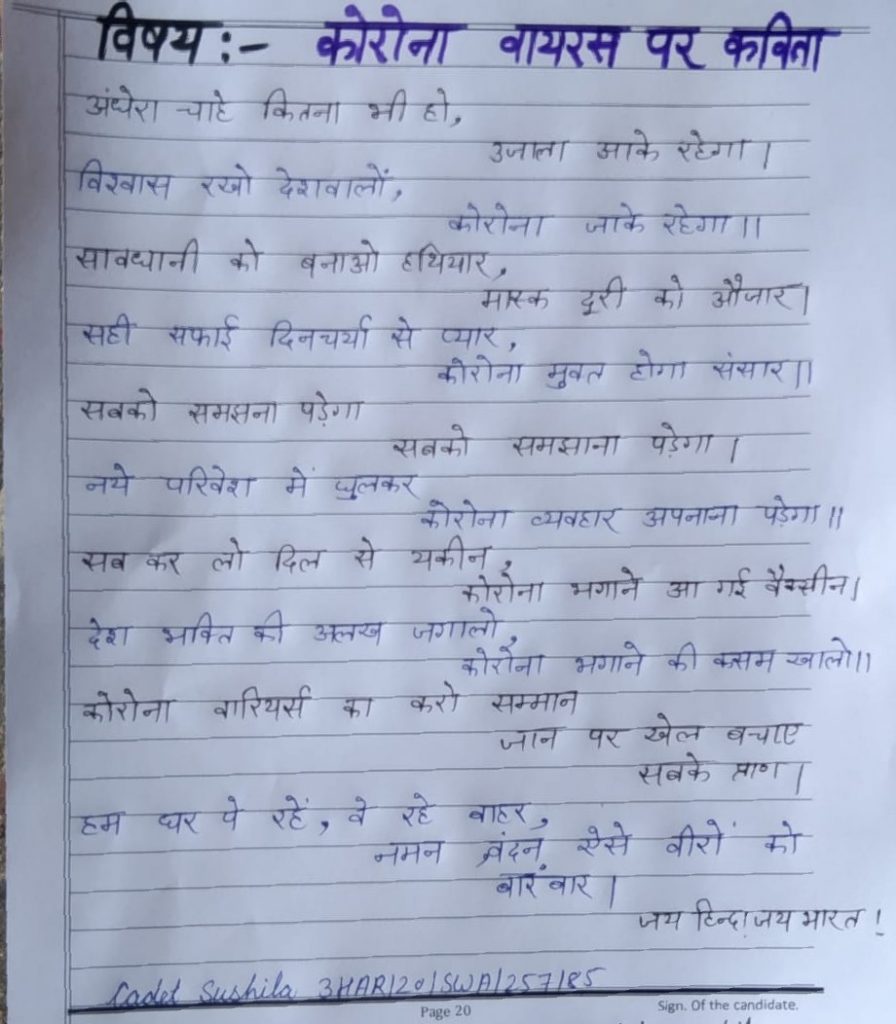 विषय :- कोरोना वायरस पर कविता
अंधेरा चाहे कितना भी हो,
उजाला आके रहेगा।
विश्वास रखो देशवालों,
कोरोना जाके रहेगा॥
सावधानी को बनाओ हथियार,
मास्क दूरी को औजार।
सही सफाई दिनचर्या से प्यार,
कोरोना मुक्त होगा संसार॥
सबको समझना पड़ेगा
सबको समझाना पड़ेगा।
नये परिवेश में घुलकर
कोरोना व्यवहार अपनाना पड़ेगा॥
सब कर लो दिल से यकीन,
कोरोना भगाने आ गई वैक्सीन।
देश भक्ति की अलख जगालो,
कोरोना भगाने की कसम खालो॥
कोरोना वारियर्स का करो सम्मान
जान पर खेल बचाए
सबके प्राण।
हम घर पे रहें, वे रहे बाहर,
नमन वंदन ऐसे वीरों को
बारंबार।
जय हिन्द। जय भारत!
Cadet Sushila 3HAR/20/SWA/257185
Page 20
Sign. Of the candidate.